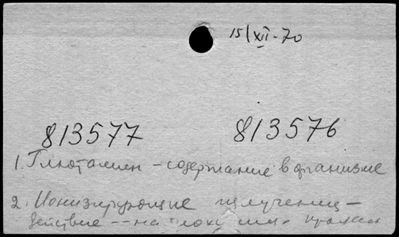 15/XII-70
813577 813576
1. Глютамин - содержание в организме
2. Ионизирующие излучения -
действие -- на